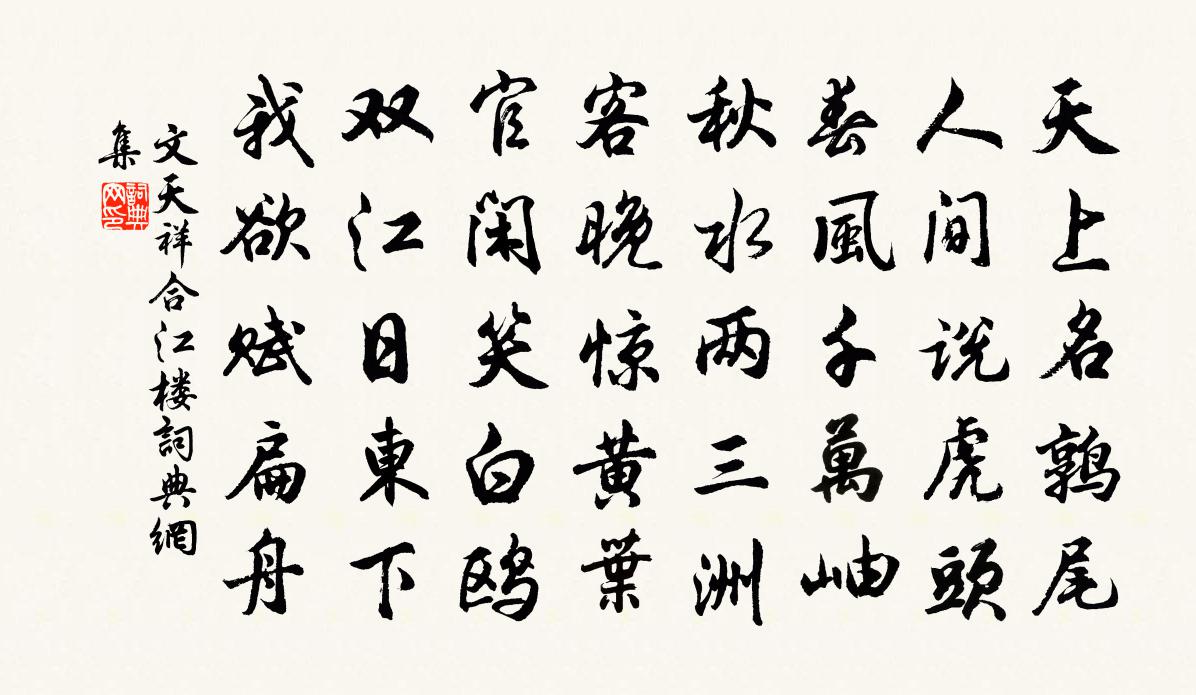 天上名鶉尾
人间说虎頭
春風千萬岫
秋水两三洲
客晚惊黄葉
官闲笑白鸥
双江日東下
我欲赋扁舟
文天祥合江楼詞典網
集
詞典
网印